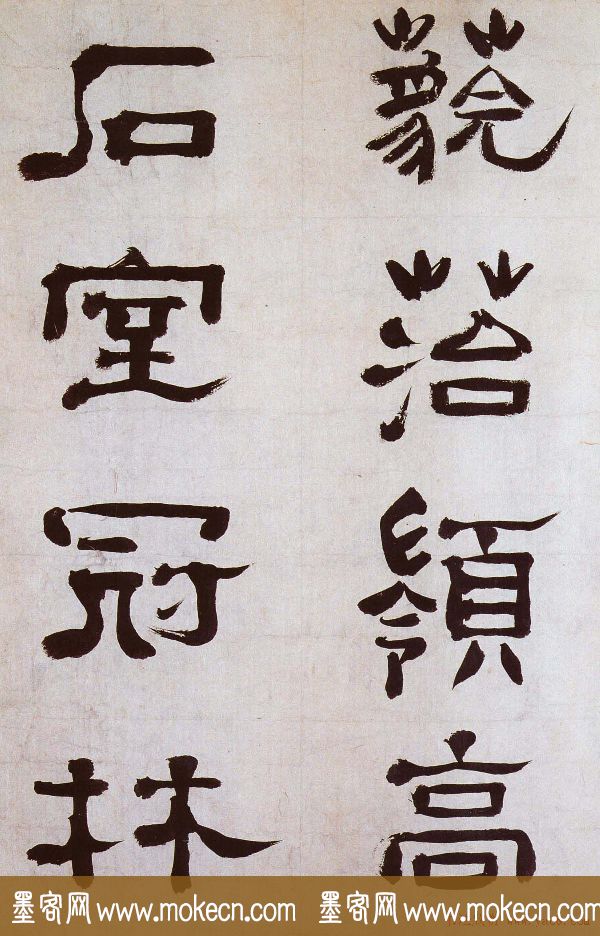 藐菭嶺高
石室冠林
墨客网 www.mokecn.com 墨客网 www.mokecn.com